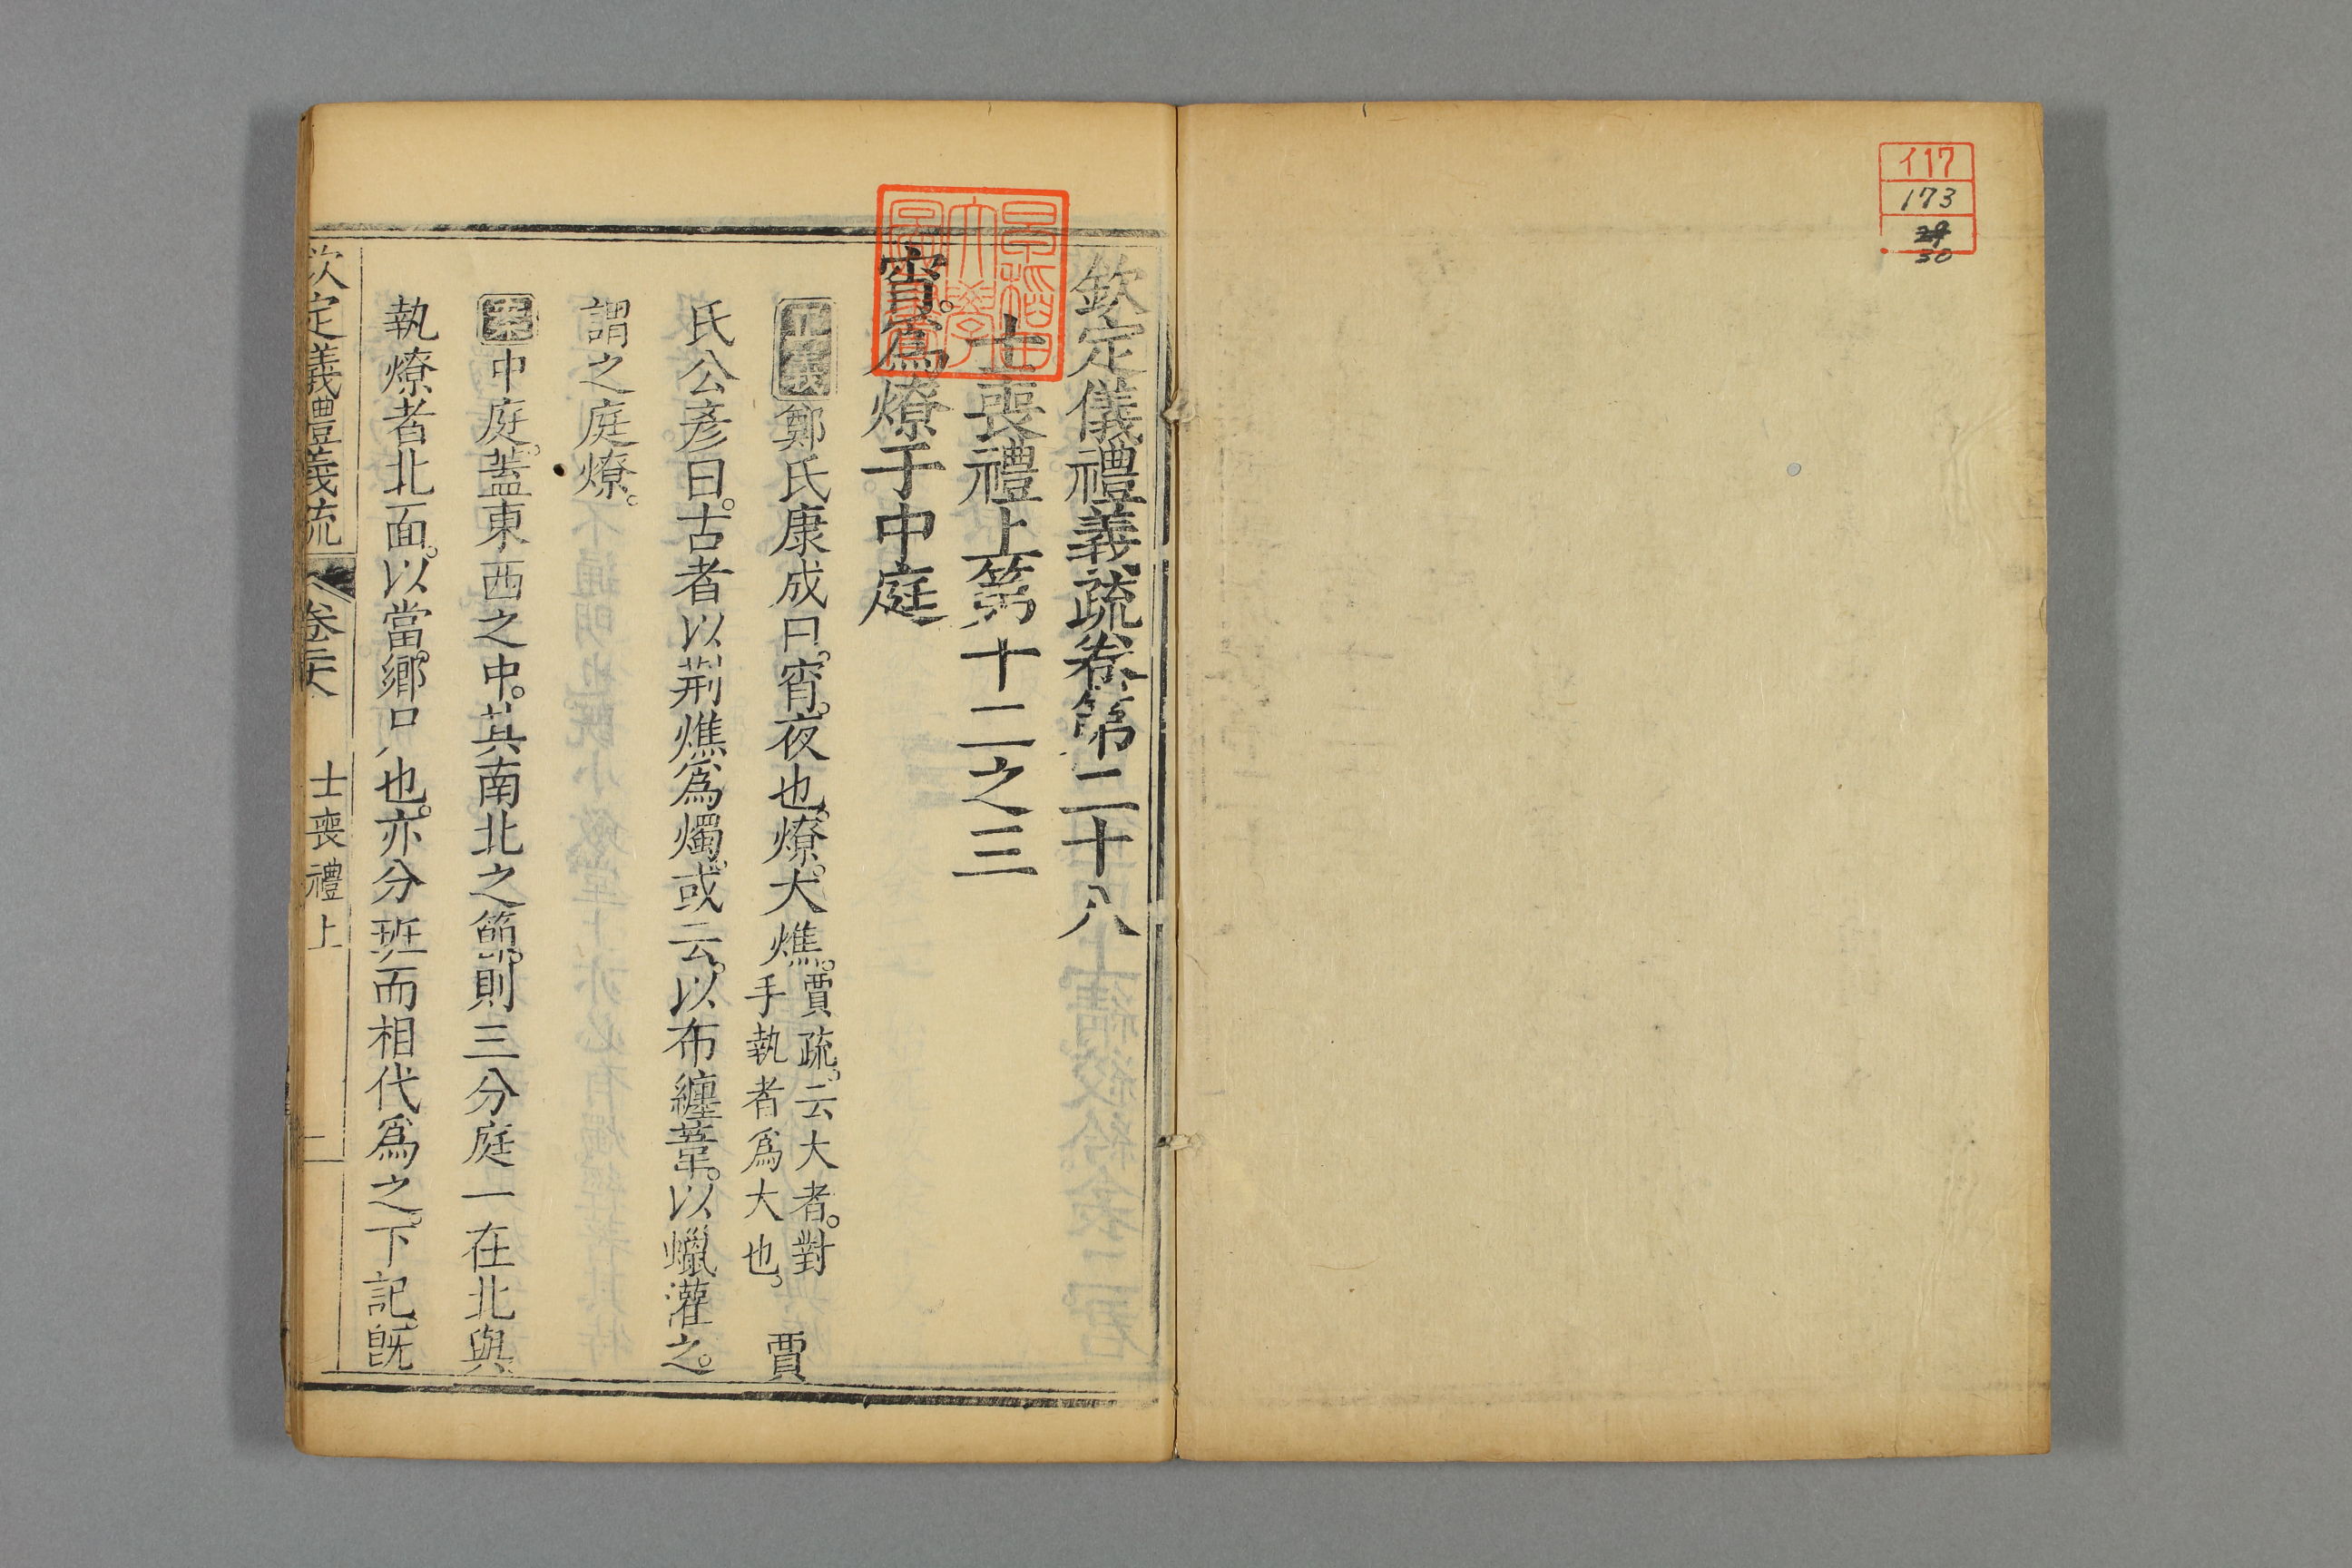 イ17
173
30
欽定儀禮義疏卷第二十八
士喪禮上第十二之三
宵。爲燎于中庭
正義鄭氏康成曰。宵。夜也。燎。大燋。賈疏。云大者。對手執者爲大也。 賈
氏公彥曰。古者以荆燋爲燭。或云。以布纏葦。以蠟灌之。
謂之庭燎。
案中庭。蓋東西之中。其南北之節。則三分庭一在北與
執燎者北面。以當鄉口也。亦分班而相代爲之。下記。旣
欽定儀禮義疏 卷二十八 士喪禮上 一
早稻田大學圖書